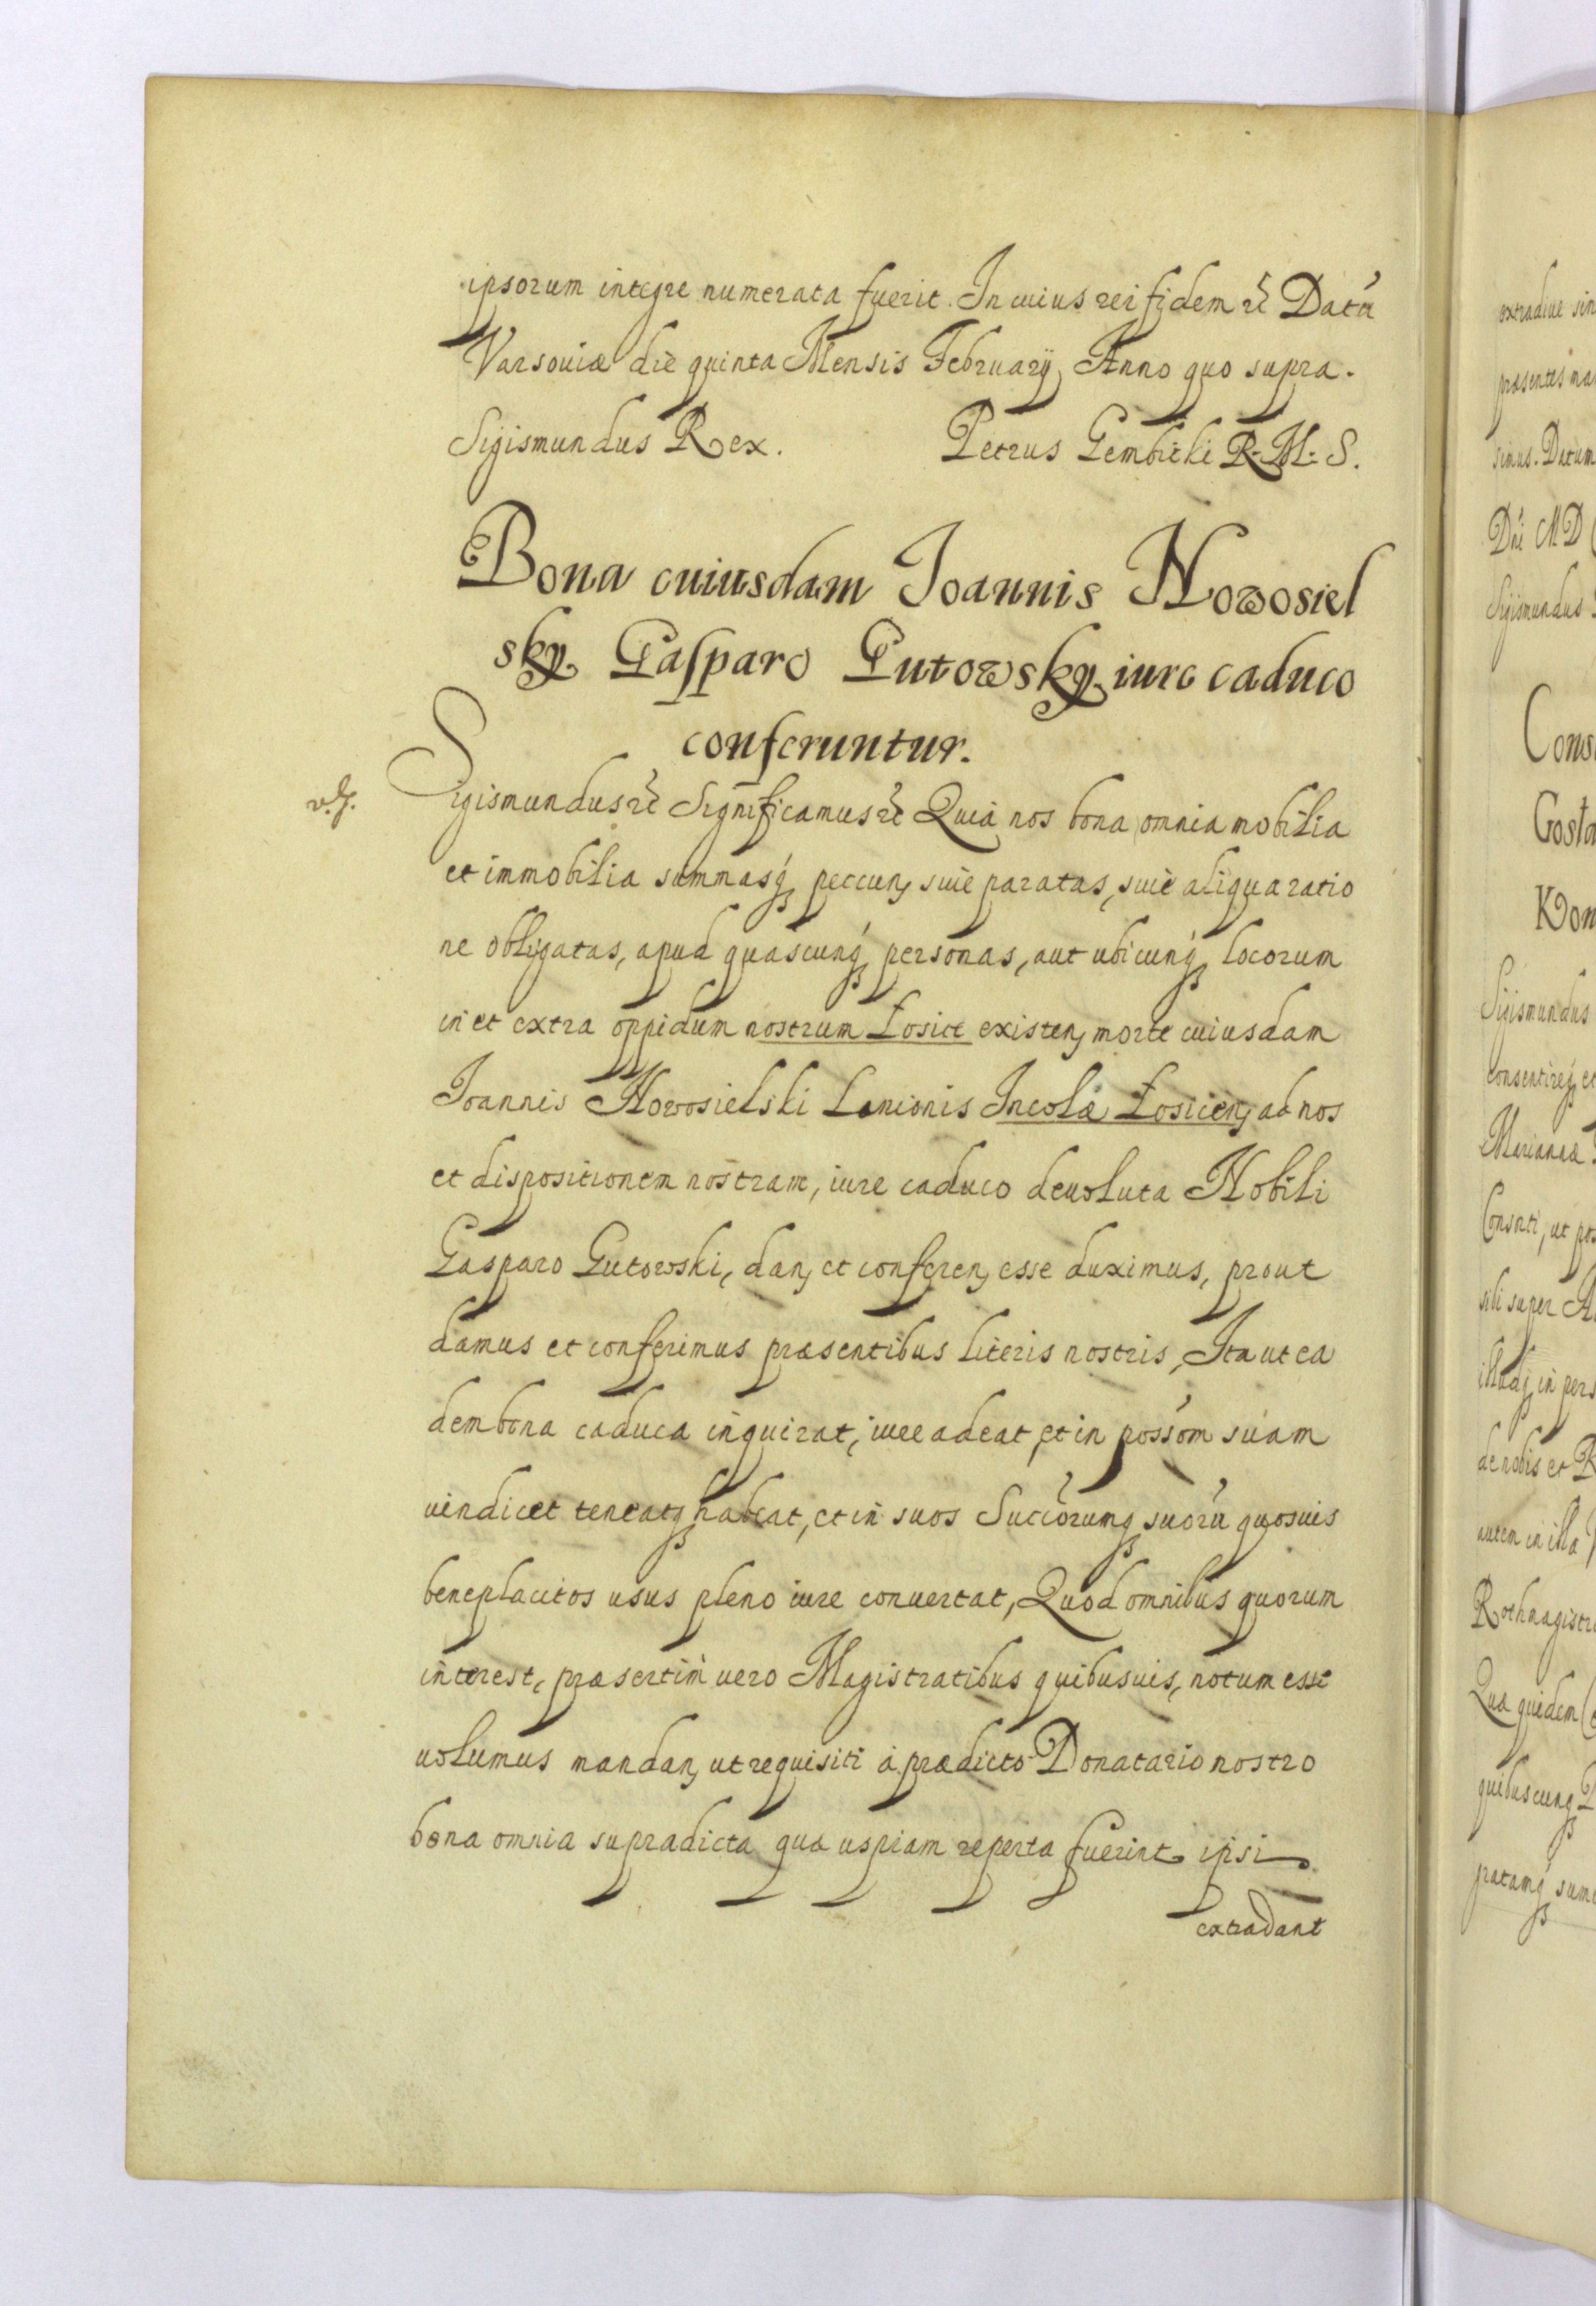 ipsorum integre numerata fuerit. In cuius rei fidem etc Datũ
Varsouiæ die quinta Mensis Februarÿ Anno quo supra.
Sigismundus Rex. Petrus Gembicki R. M. S.
Bona cuiusdam Joannis Nowosiel
sky Gasparo Gutowsky iure caduco
conferuntur.
Sigismundus etc Significamus etc Quia nos bona omnia mobilia
et immobilia summasq́ꝫ peccunꝫ siue paratas, siue aliqua ratio
ne obligatas, apud quascunq́ꝫ personas, aut ubicunq́ꝫ locorum
in et extra oppidum nostrum Łosice existenꝫ morte cuiusdam
Joannis Nowosielski Lanionis Incolæ Łosicenꝫ ad nos
et dispositionem nostram, iure caduco deuoluta Nobili
Gasparo Gutowski, danꝫ et conferenꝫ esse duximus, prout
damus et conferimus præsentibus literis nostris, Ita ut ea
dem bona caduca inquirat, iure adeat, et in possõm suam
uindicet teneatqꝫ habeat, et in suos Succõrumqꝫ suorũ quosuis
beneplacitos usus pleno iure conuertat, Quod omnibus quorum
interest, præsertim uero Magistratibus quibusuis, notum esse
uolumus mandanꝫ ut requisiti à prædicto Donatario nostro
bona omnia supradicta quæ uspiam reperta fuerint ipsi
extradant
extradiue sin
præsentes ma
simus. Datum
Dñi MD
Sigismundus
Cons
Gosta
Kon
Sigismundus
consentireqꝫ et
Marianæ
Consnti, ut pos
sibi super A
illudqꝫ in pers
de nobis et R
autem in illa
Rothmagistr
Qua quidem
quibuscunqꝫ
pratamq́ꝫ sum